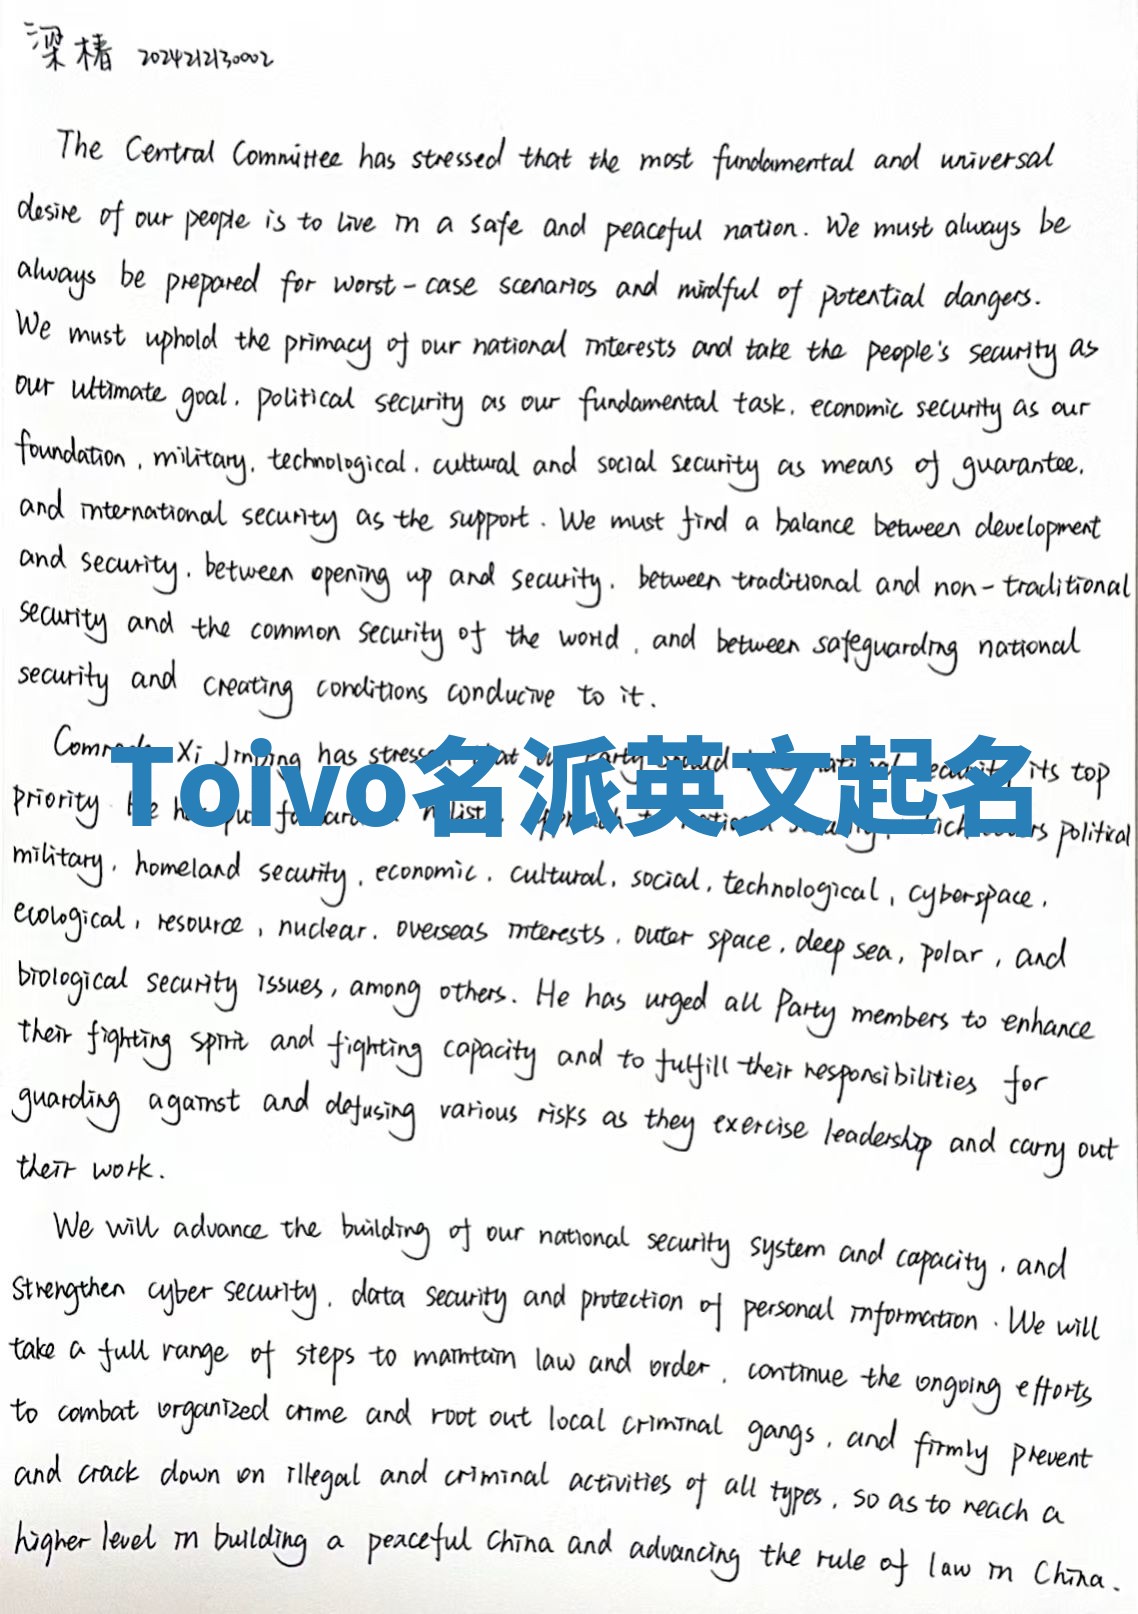 梁椿 2024212130002
The Central Committee has stressed that the most fundamental and universal
desire of our people is to live in a safe and peaceful nation. We must always be
always be prepared for worst-case scenarios and mindful of potential dangers.
We must uphold the primacy of our national interests and take the people's security as
our ultimate goal, political security as our fundamental task, economic security as our
foundation, military, technological, cultural and social security as means of guarantee,
and international security as the support. We must find a balance between development
and security, between opening up and security, between traditional and non-traditional
security and the common security of the world, and between safeguarding national
security and creating conditions conducive to it.
Xi Jinping has its top
Toivo名派英文起名
priority political
military, homeland security, economic, cultural, social, technological, cyberspace,
ecological, resource, nuclear, overseas interests, outer space, deep sea, polar, and
biological security issues, among others. He has urged all Party members to enhance
their fighting spirit and fighting capacity and to fulfill their responsibilities for
guarding against and defusing various risks as they exercise leadership and carry out
their work.
We will advance the building of our national security system and capacity, and
strengthen cyber security, data security and protection of personal information. We will
take a full range of steps to maintain law and order, continue the ongoing efforts
to combat organized crime and root out local criminal gangs, and firmly prevent
and crack down on illegal and criminal activities of all types, so as to reach a
higher level in building a peaceful China and advancing the rule of law in China.